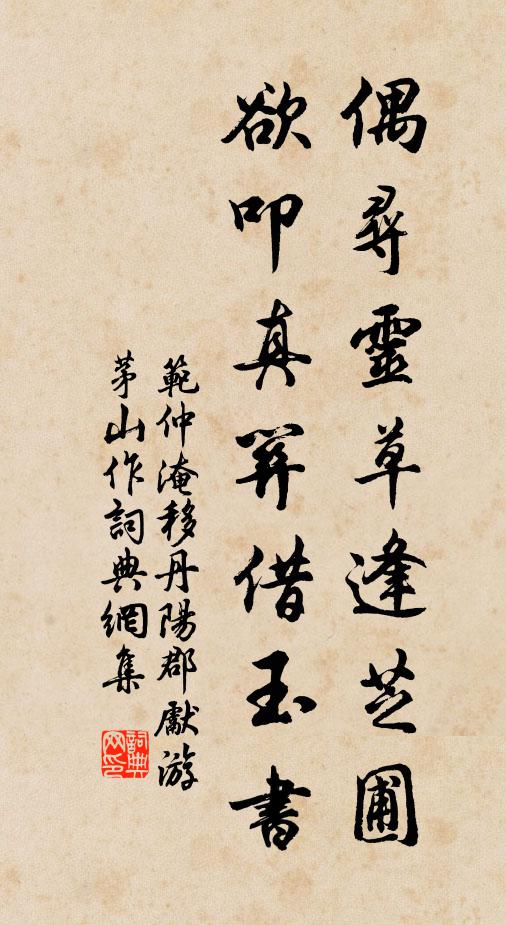 偶尋靈草逢芝圃
欲叩真筭借玉書
範仲淹移丹陽郡獻游
茅山作詞典網集
詞典網印